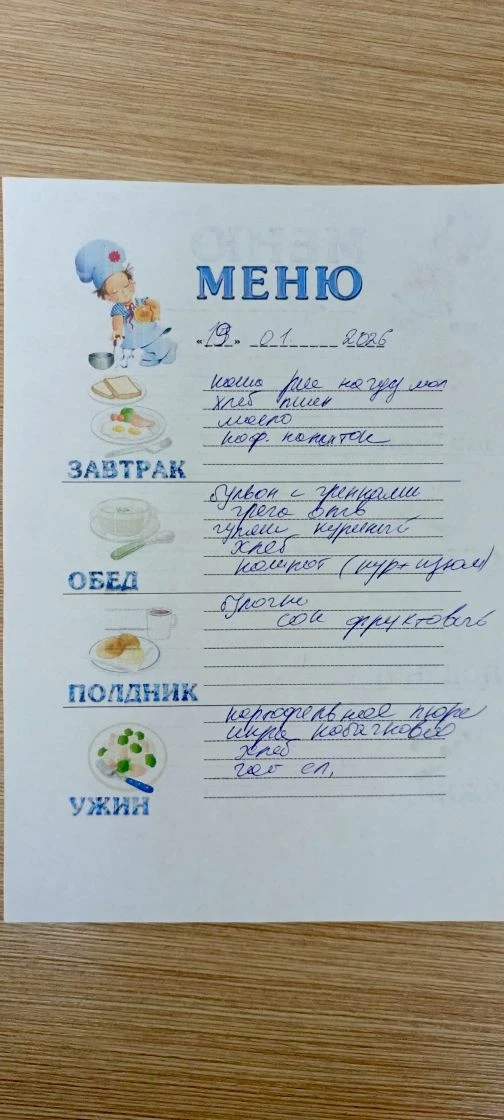 МЕНЮ
«19» 01. 2026
каша рис на сгущ мол
хлеб пшен
масло
коф. напиток
ЗАВТРАК
бульон с гренками
греча отв
гуляш куриный
хлеб
компот (кур+изюм)
ОБЕД
булочка
сок фруктовый
ПОЛДНИК
картофельное пюре
икра кабачковая
хлеб
чай сл.
УЖИН